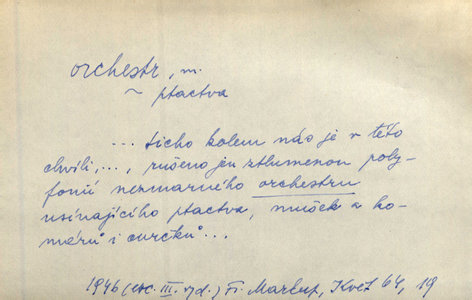 orchestr, m.
~ ptactva
... ticho kolem nás je v této
chvíli, ..., rušeno jen ztlumenou poly-
fonií nezmarného orchestru
usínajícího ptactva, mušek a ko-
márů i cvrčků...
1946 (roc. III. vyd.) Fr. Markup, Květ 64, 19